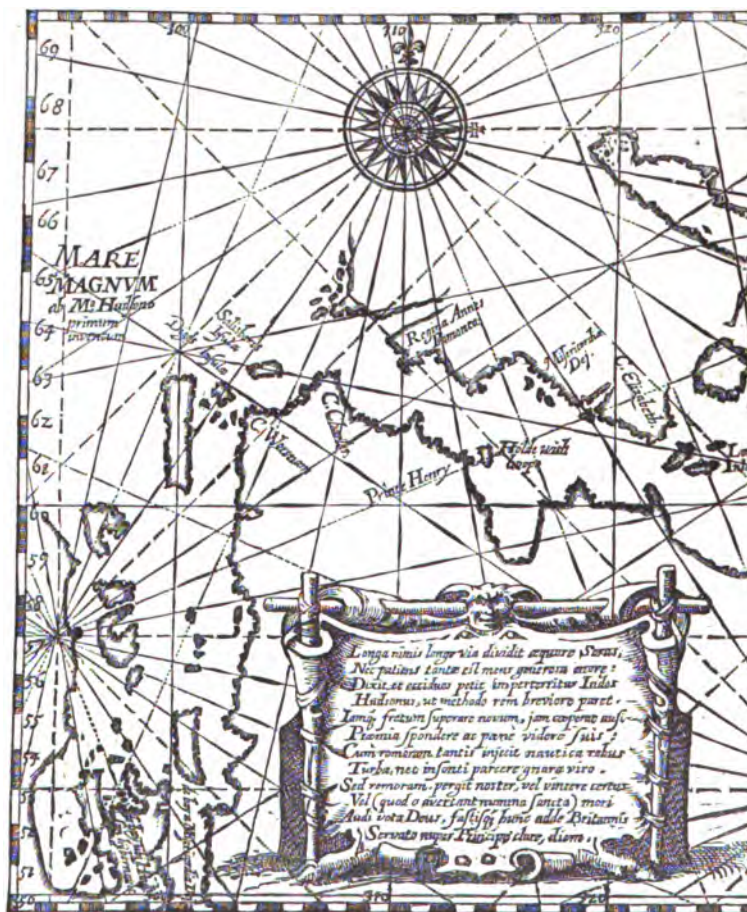 300
310
320
69
68
67
66
65
64
63
62
61
60
59
58
56
55
54
53
52
51
50
MARE
MAGNVM
ab Mo Hudsono
primum
inventum
Salisberis
Insula
Digs Insula
Regina Annes
Misericordia
Dej.
C. Elizabeth.
C. Worsnam
Prince Henry
Holde with
hoope
Longa nimis longe via dividit æquore Seras,
Nec patiens tantæ est mens generosa moræ:
Dixit, et occiduos petit imperterritus Indos
Hudsonus, ut methodo rem breviore paret.
Iamq; fretum superare novum, jam cœperat ausis
Præmia spondere ac pæne videre suis:
Cum remoram tantis injecit nautica rebus
Turba, nec insonti parcere gnara viro.
Sed remoram, pergit noster, vel vincere certus
Vel (quod o avertant numina sancta) mori
Audi vota Deus, fastisq; hunc adde Britannis
Servato nuper Principe clare, diem.
310
320